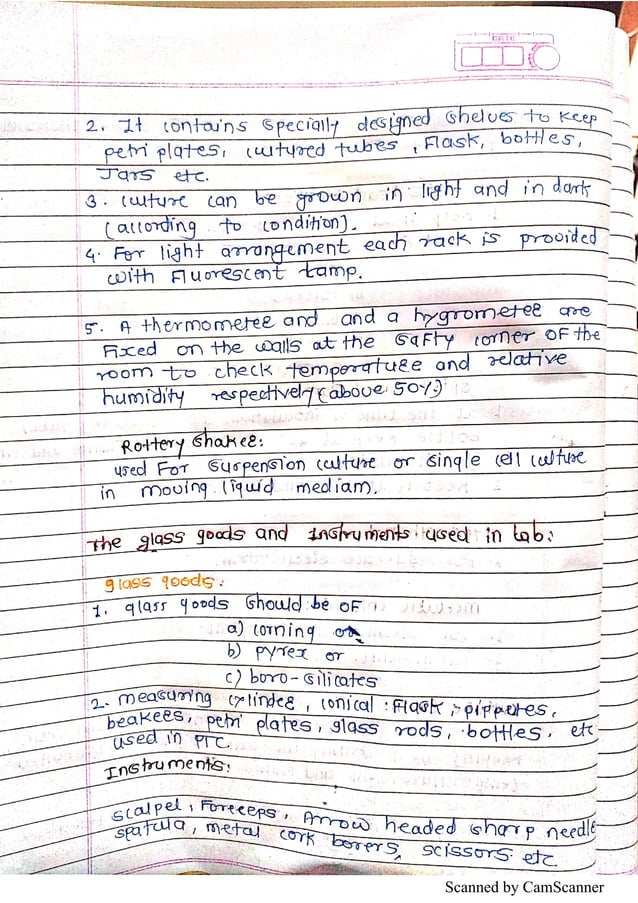 DATE
2. It contains specially designed shelves to keep
petri plates, cultured tubes, Flask, bottles,
Jars etc.
3. culture can be grown in light and in dark
(according to condition).
4. For light arrangement each rack is provided
with Fluorescent Lamp.
5. A thermometer and and a hygrometer are
Fixed on the walls at the safty corner OF the
room to check temperature and relative
humidity respectively (above 50%)
Rottery shaker:
used For suspension culture or single cell culture
in moving liquid mediam.
The glass goods and Instruments used in Lab:
glass goods:
1. glass goods should be OF
a) corning or
b) pyrex or
c) boro-silicates
2. measuring cylinder, conical: Flask, pippetes,
beakers, petri plates, glass rods, bottles, etc
used in PTC
Instruments:
scalpel, Forceeps, Arrow headed sharp needle
spatula, metal cork borers, scissors etc
Scanned by CamScanner